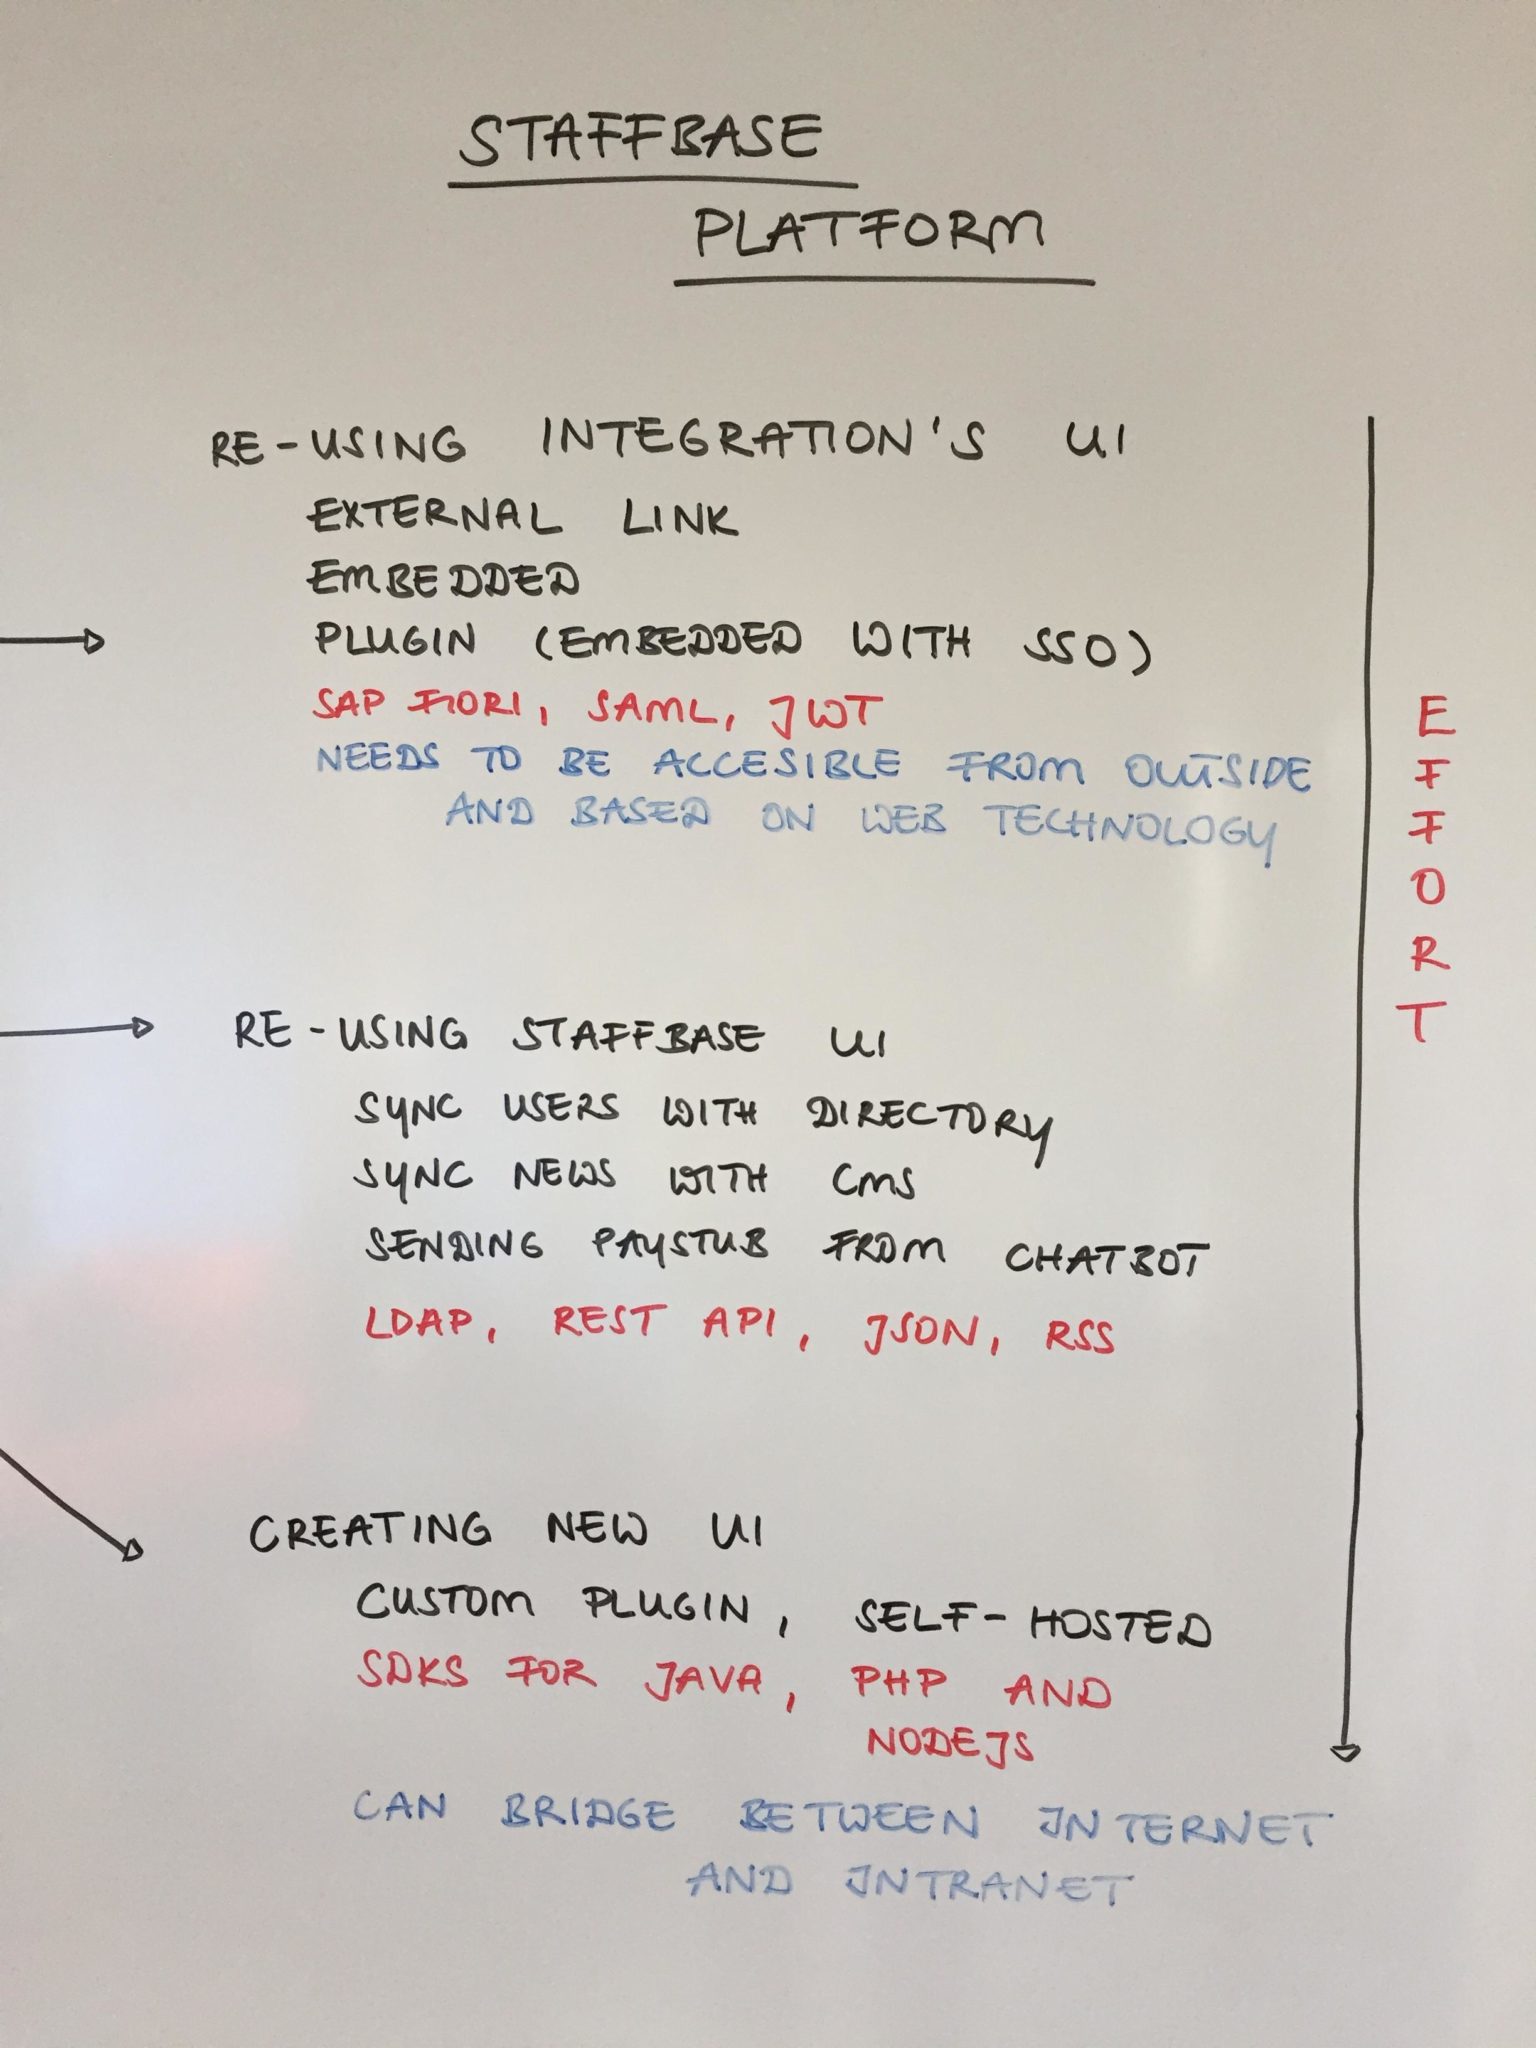 STAFFBASE
PLATFORM
RE-USING INTEGRATION'S UI
EXTERNAL LINK
EMBEDDED
PLUGIN (EMBEDDED WITH SSO)
SAP FIORI, SAML, JWT
NEEDS TO BE ACCESIBLE FROM OUTSIDE
AND BASED ON WEB TECHNOLOGY
EFFORT
RE-USING STAFFBASE UI
SYNC USERS WITH DIRECTORY
SYNC NEWS WITH CMS
SENDING PAYSTUB FROM CHATBOT
LDAP, REST API, JSON, RSS
CREATING NEW UI
CUSTOM PLUGIN, SELF-HOSTED
SDKS FOR JAVA, PHP AND
NODEJS
CAN BRIDGE BETWEEN INTERNET
AND INTRANET